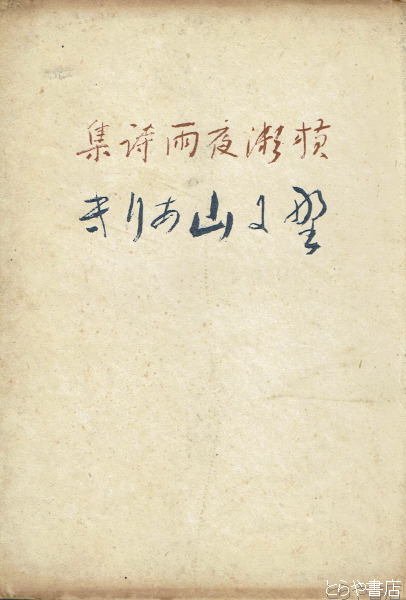 横瀬夜雨詩集
野に山ありき
とらや書店